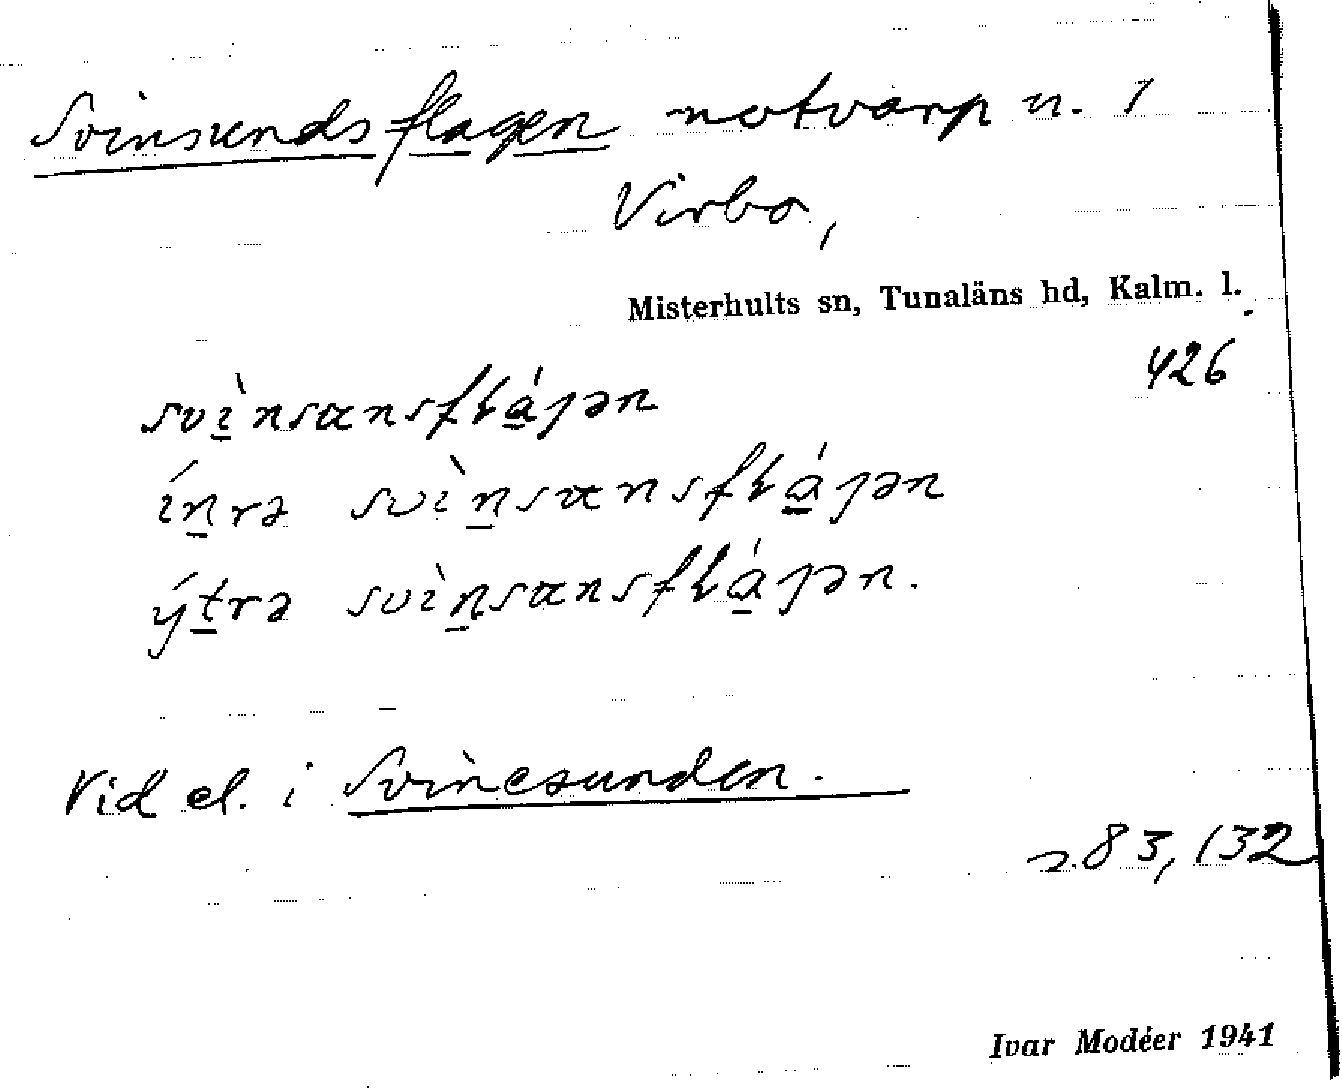 Svinsundsflagen notvarp n. 1
Virbo,
Misterhults sn, Tunaläns hd, Kalm. l.
426
svìnsansflágən
ínrə svìnsansflágən
ýtrə svìnsansflágən.
Vid el. i Svinesunden.
s. 83, 132
Ivar Modéer 1941